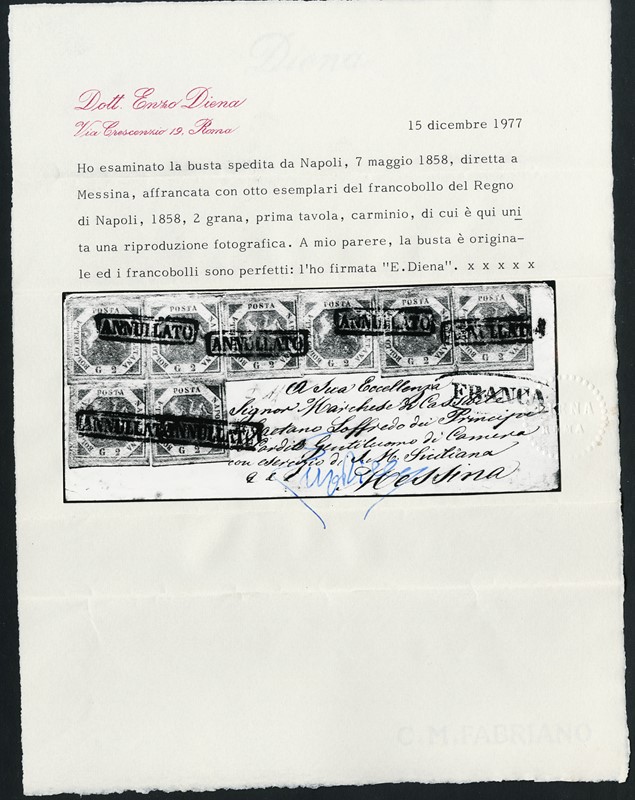 Diena
Dott. Enzo Diena
Via Crescenzio 19, Roma
15 dicembre 1977
Ho esaminato la busta spedita da Napoli, 7 maggio 1858, diretta a
Messina, affrancata con otto esemplari del francobollo del Regno
di Napoli, 1858, 2 grana, prima tavola, carminio, di cui è qui uni
ta una riproduzione fotografica. A mio parere, la busta è origina-
le ed i francobolli sono perfetti: l'ho firmata "E.Diena". x x x x x
POSTA POSTA POSTA POSTA POSTA POSTA
ANNULLATO ANNULLATO ANNULLATO ANNULLATO
G 2 G 2 G 2 G 2 G 2 G 2
POSTA POSTA
ANNULLATO ANNULLATO
G 2 G 2
FRANCA
A Sua Eccellenza
Signor Marchese di
Gaetano Loffredo dei Principi
Cardito Gentiluomo di Camera
con esercizio di S. M. Siciliana
Messina
C.M.FABRIANO